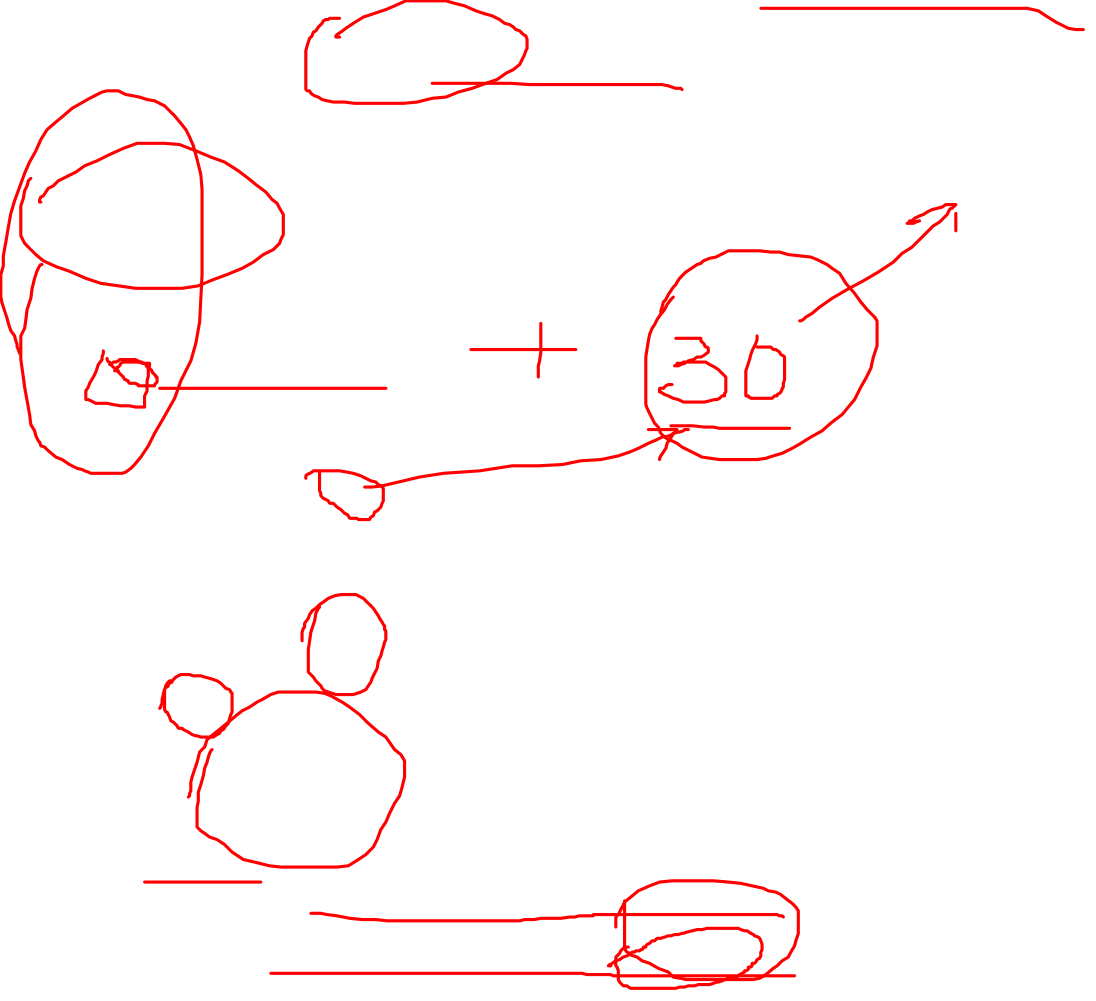 + 30